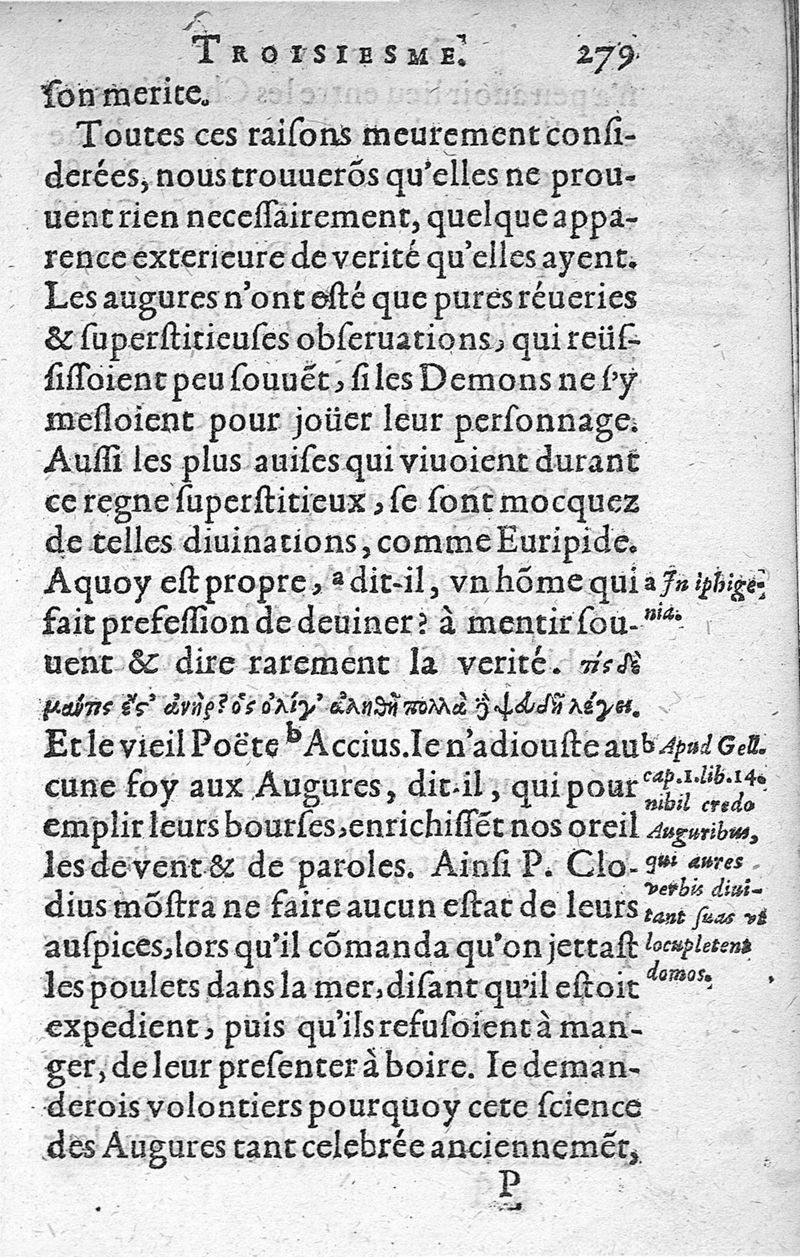 TROISIESME. 279
ſon merite.
Toutes ces raiſons meurement conſi-
derées, nous trouuerõs qu'elles ne prou-
uent rien neceſſairement, quelque appa-
rence exterieure de verité qu'elles ayent.
Les augures n'ont eſté que pures réueries
& ſuperſtitieuſes obſeruations, qui reüſ-
ſiſſoient peu ſouuẽt, ſi les Demons ne ſ'y
meſloient pour joüer leur perſonnage.
Auſſi les plus auiſes qui viuoient durant
ce regne ſuperſtitieux, ſe ſont mocquez
de telles diuinations, comme Euripide.
A quoy eſt propre, ᵃ dit-il, vn hõme qui
fait prefeſſion de deuiner? à mentir ſou-
uent & dire rarement la verité. τίς δὲ
μαύτις ἔς' ἀνὴρ? ὁς ὀλίγ' ἀληθῆ πολλὰ ἢ ψευδῆ λέγει.
Et le vieil Poëte ᵇ Accius. Ie n'adiouſte au
cune foy aux Augures, dit-il, qui pour
emplir leurs bourſes, enrichiſſẽt nos oreil
les de vent & de paroles. Ainſi P. Clo-
dius mõſtra ne faire aucun eſtat de leurs
auſpices, lors qu'il cõmanda qu'on jettaſt
les poulets dans la mer, diſant qu'il eſtoit
expedient, puis qu'ils refuſoient à man-
ger, de leur preſenter à boire. Ie deman-
derois volontiers pourquoy cete ſcience
des Augures tant celebrée anciennemẽt,
P
a In iphige-
nia.
b Apud Gell.
cap. 1. lib. 14.
nihil credo
Auguribus,
qui aures
verbis diui-
tant ſuas vt
locupletent
domos.